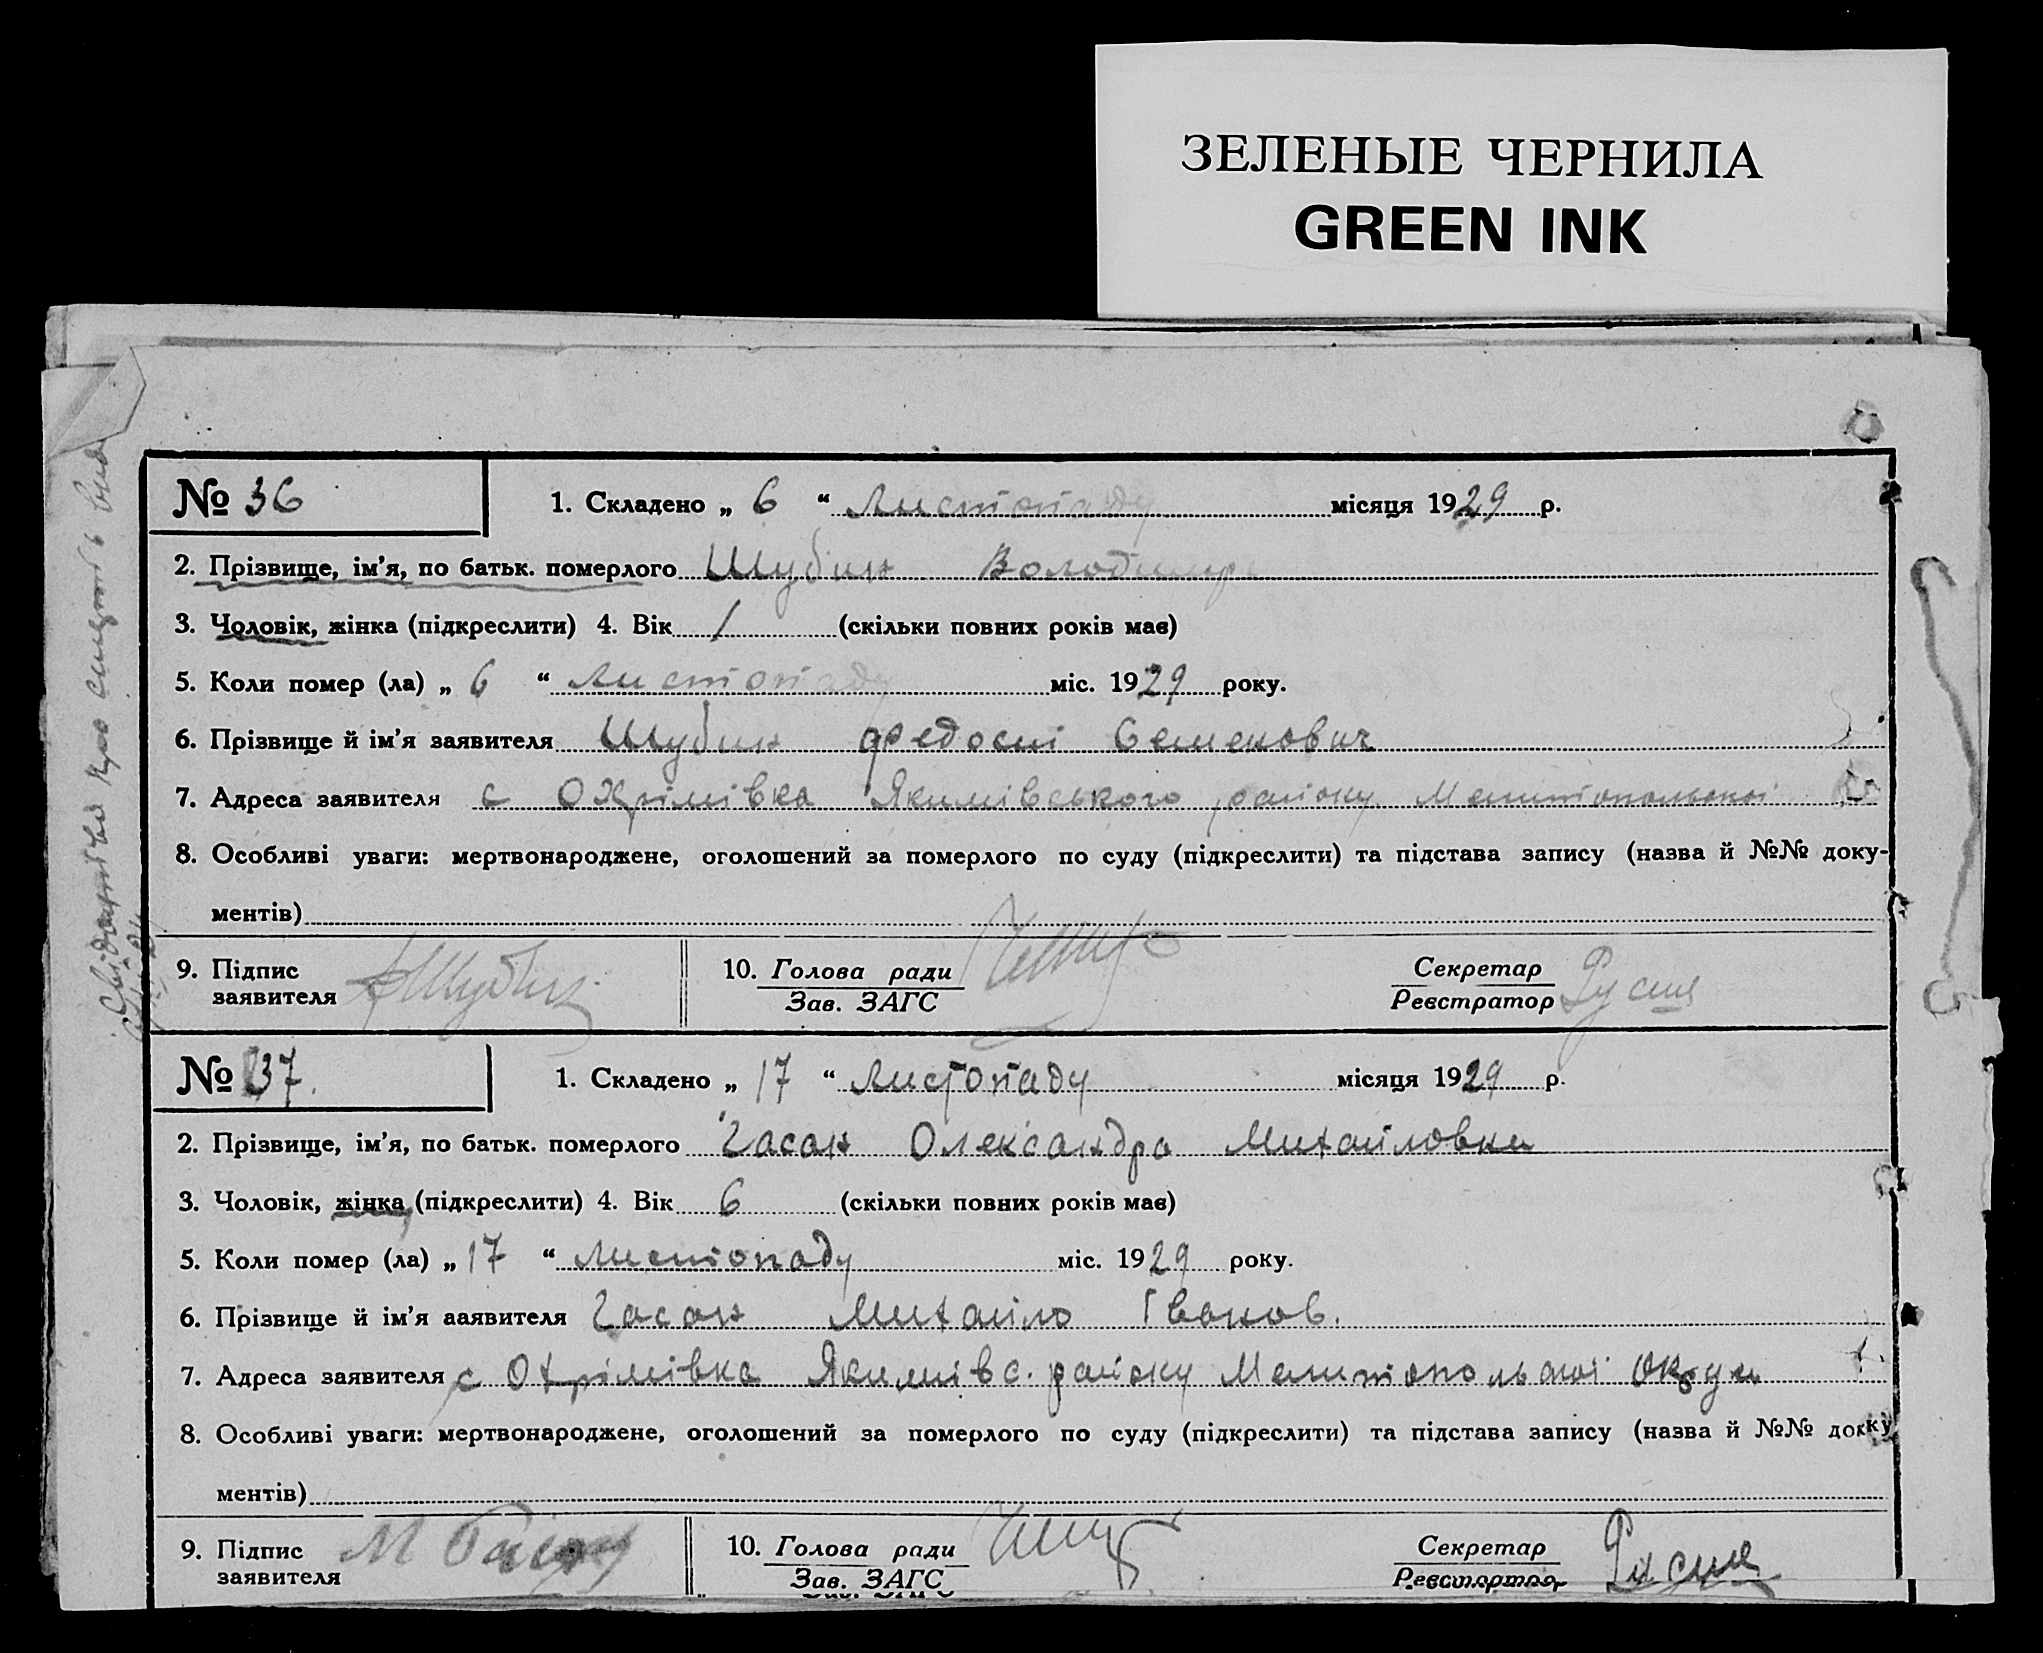 ЗЕЛЕНЫЕ ЧЕРНИЛА
GREEN INK
№ 36
1. Складено „ 6 “ Листопаду місяця 1929 р.
2. Прізвище, ім'я, по батьк. померлого Шубин Володимир
3. Чоловік, жінка (підкреслити) 4. Вік 1 (скільки повних років має)
5. Коли помер (ла) „ 6 “ Листопаду міс. 1929 року.
6. Прізвище й ім'я заявителя Шубин Федосій Семенович
7. Адреса заявителя с Охрімівка Якимівського району Мелитопольської
8. Особливі уваги: мертвонароджене, оголошений за померлого по суду (підкреслити) та підстава запису (назва й №№ доку-
ментів)
9. Підпис заявителя Шубин 10. Голова ради Секретар
Зав. ЗАГС Реєстратор
№ 37.
1. Складено „ 17 “ Листопаду місяця 1929 р.
2. Прізвище, ім'я, по батьк. померлого Гасан Олександра Михайловни
3. Чоловік, жінка (підкреслити) 4. Вік 6 (скільки повних років має)
5. Коли помер (ла) „ 17 “ Листопаду міс. 1929 року.
6. Прізвище й ім'я ааявителя Гасан Михайло Іванов.
7. Адреса заявителя с Охрімівка Якимівс. району Мелитопольської Округи
8. Особливі уваги: мертвонароджене, оголошений за померлого по суду (підкреслити) та підстава запису (назва й №№ доку
ментів)
9. Підпис заявителя М Гасан 10. Голова ради Секретар
Зав. ЗАГС Реєстратор